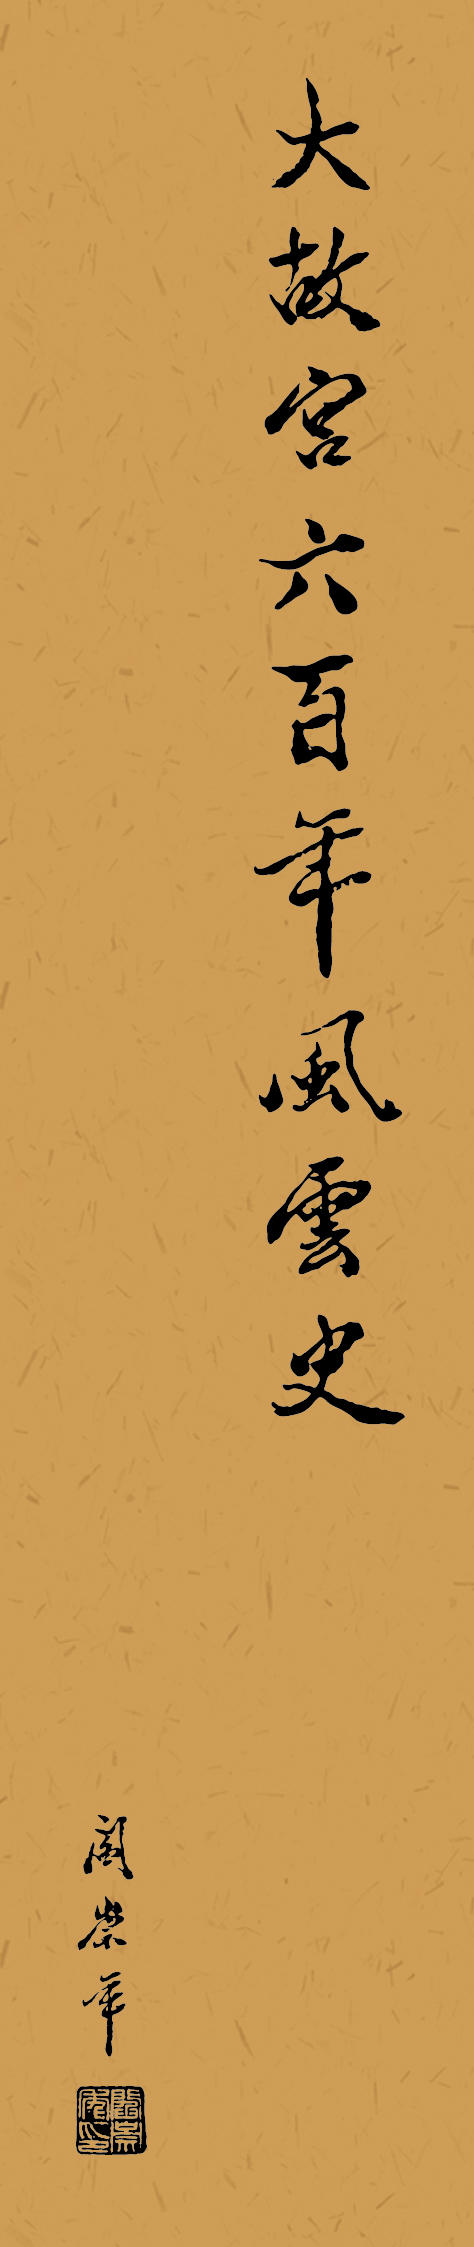 大故宫六百年風雲史
阎崇年
閻崇年印